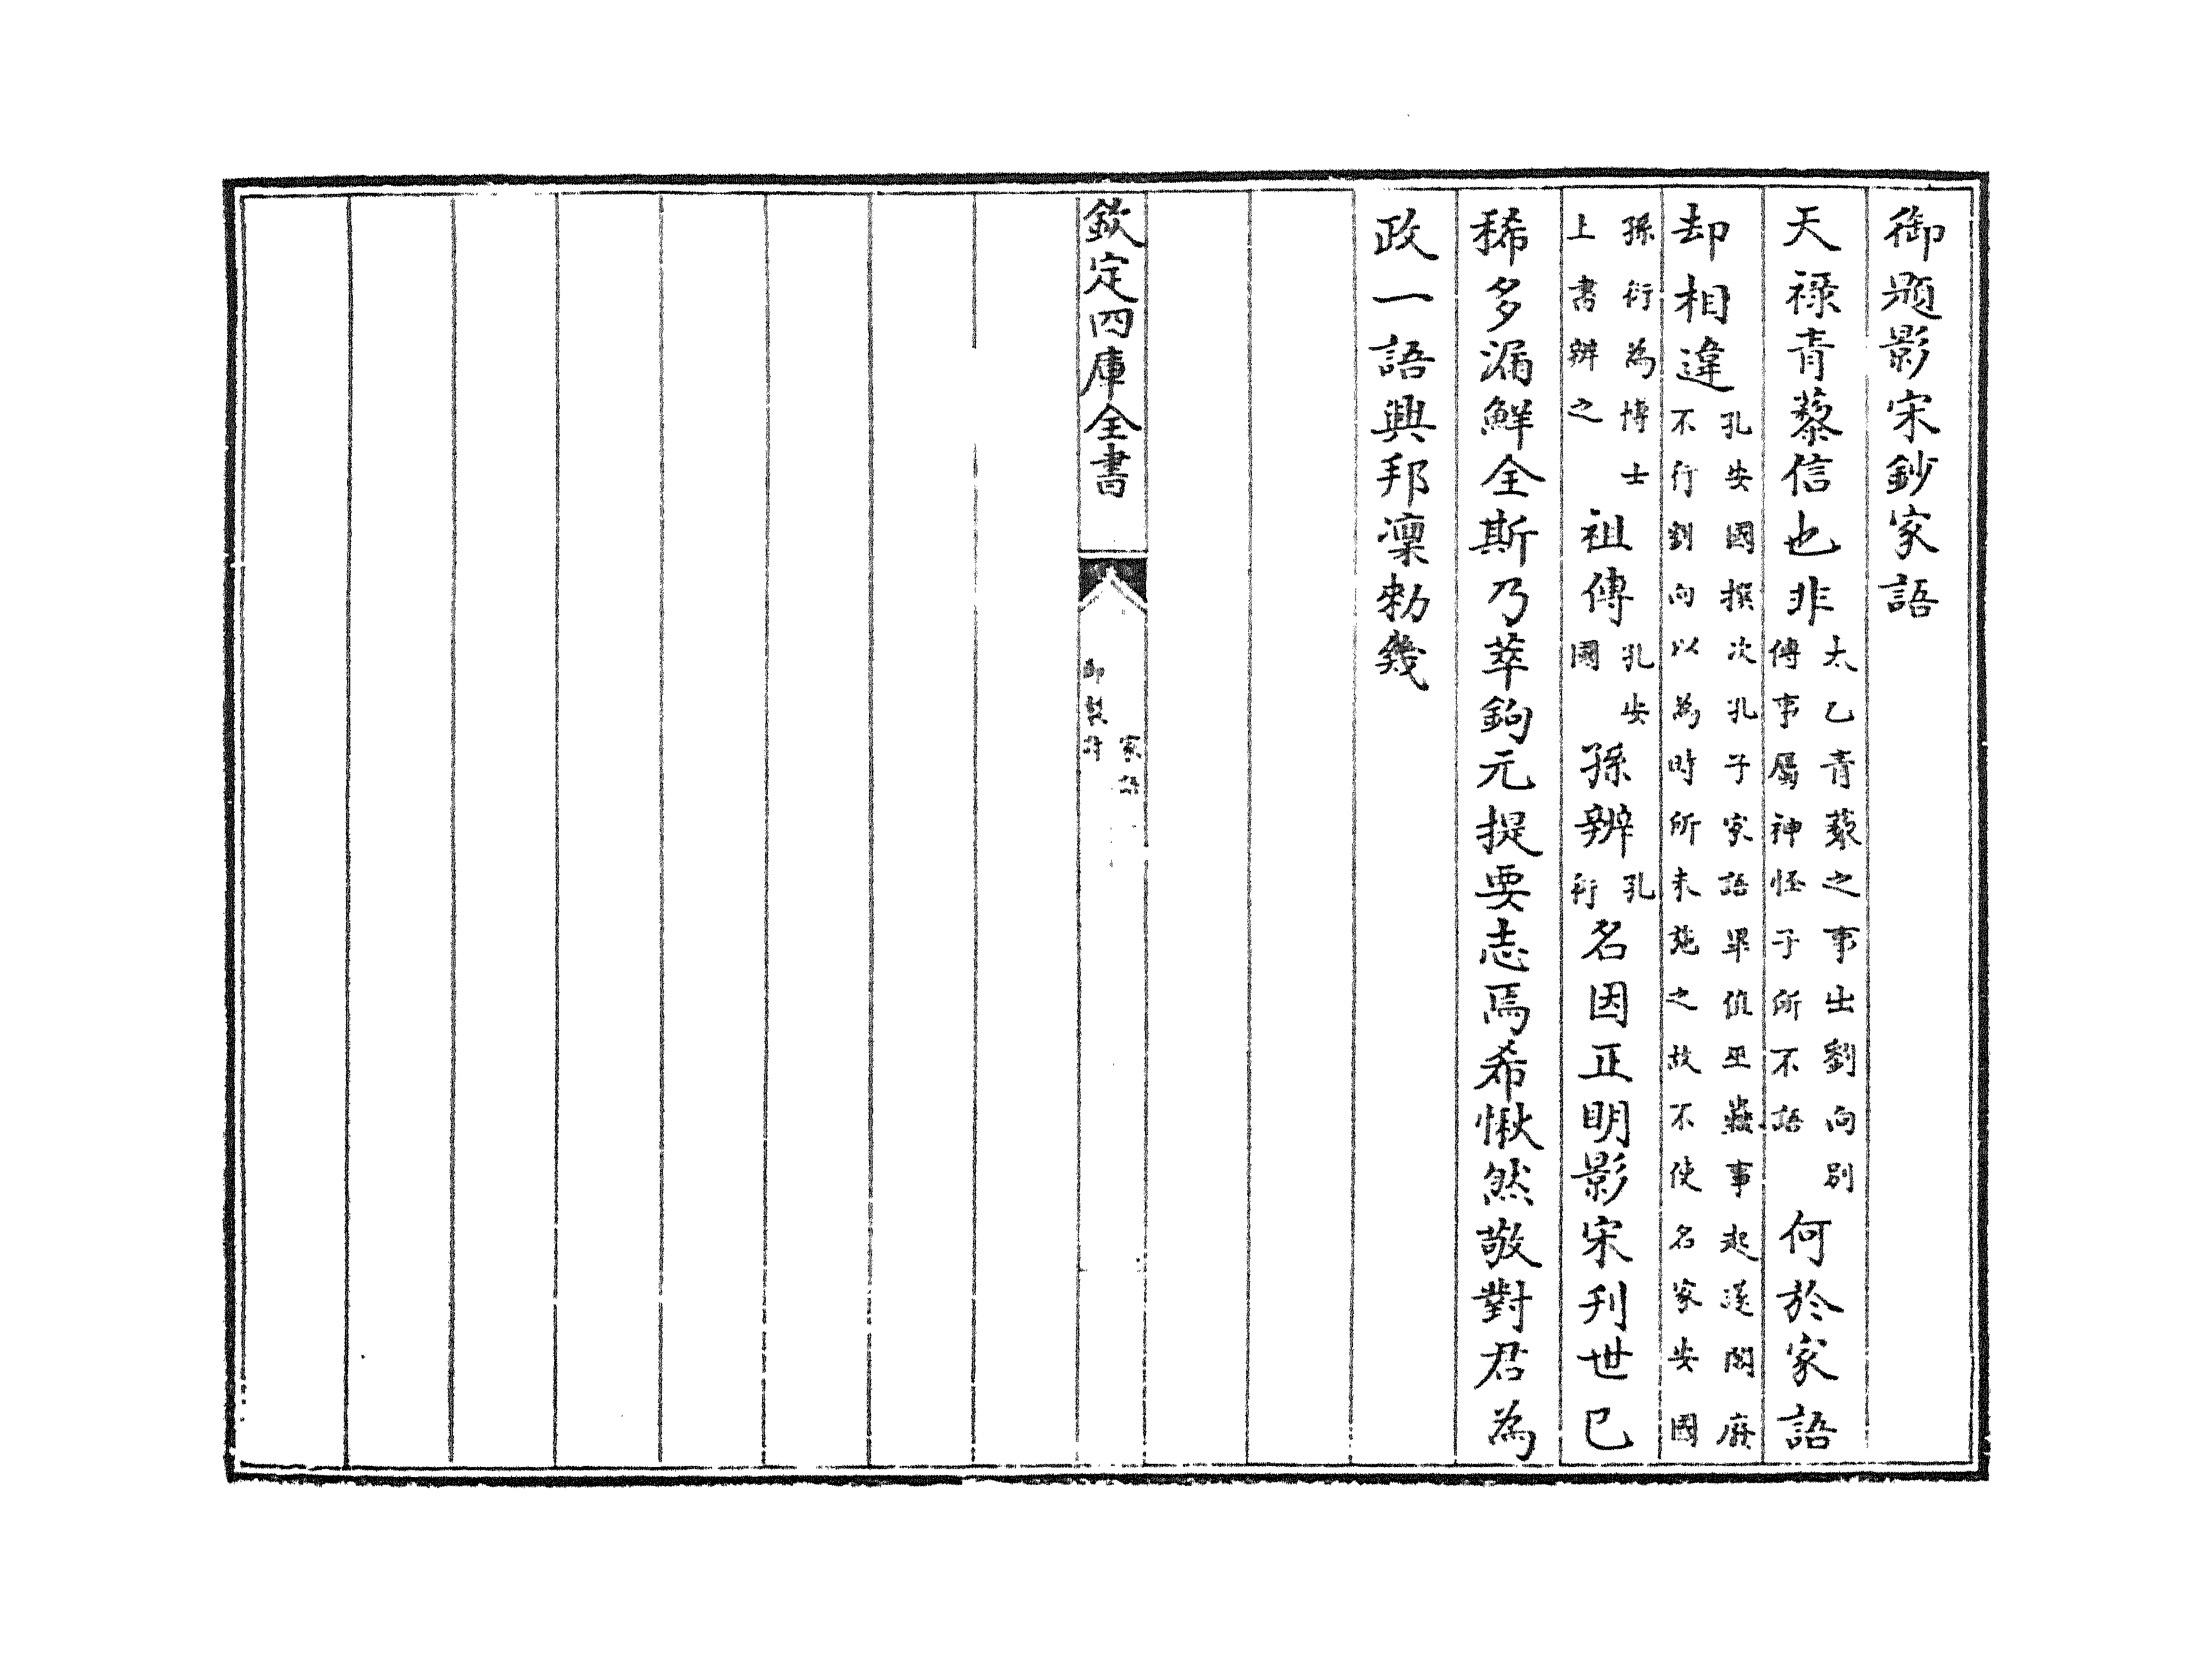 御題影宋鈔家語
天祿青藜信也非太乙青藜之事出劉向別傳事屬神怪子所不語何於家語
却相違孔安國撰次孔子家語畢值巫蠱事起遂閣廢不行劉向以為時所未施之故不使名家安國
孫衍為博士上書辨之祖傳孔安國孫辨孔衍名因正明影宋刋世已
稀多漏鮮全斯乃萃鉤元提要志焉希愀然敬對君為
政一語興邦凜勑幾
欽定四庫全書
家語
御製詩